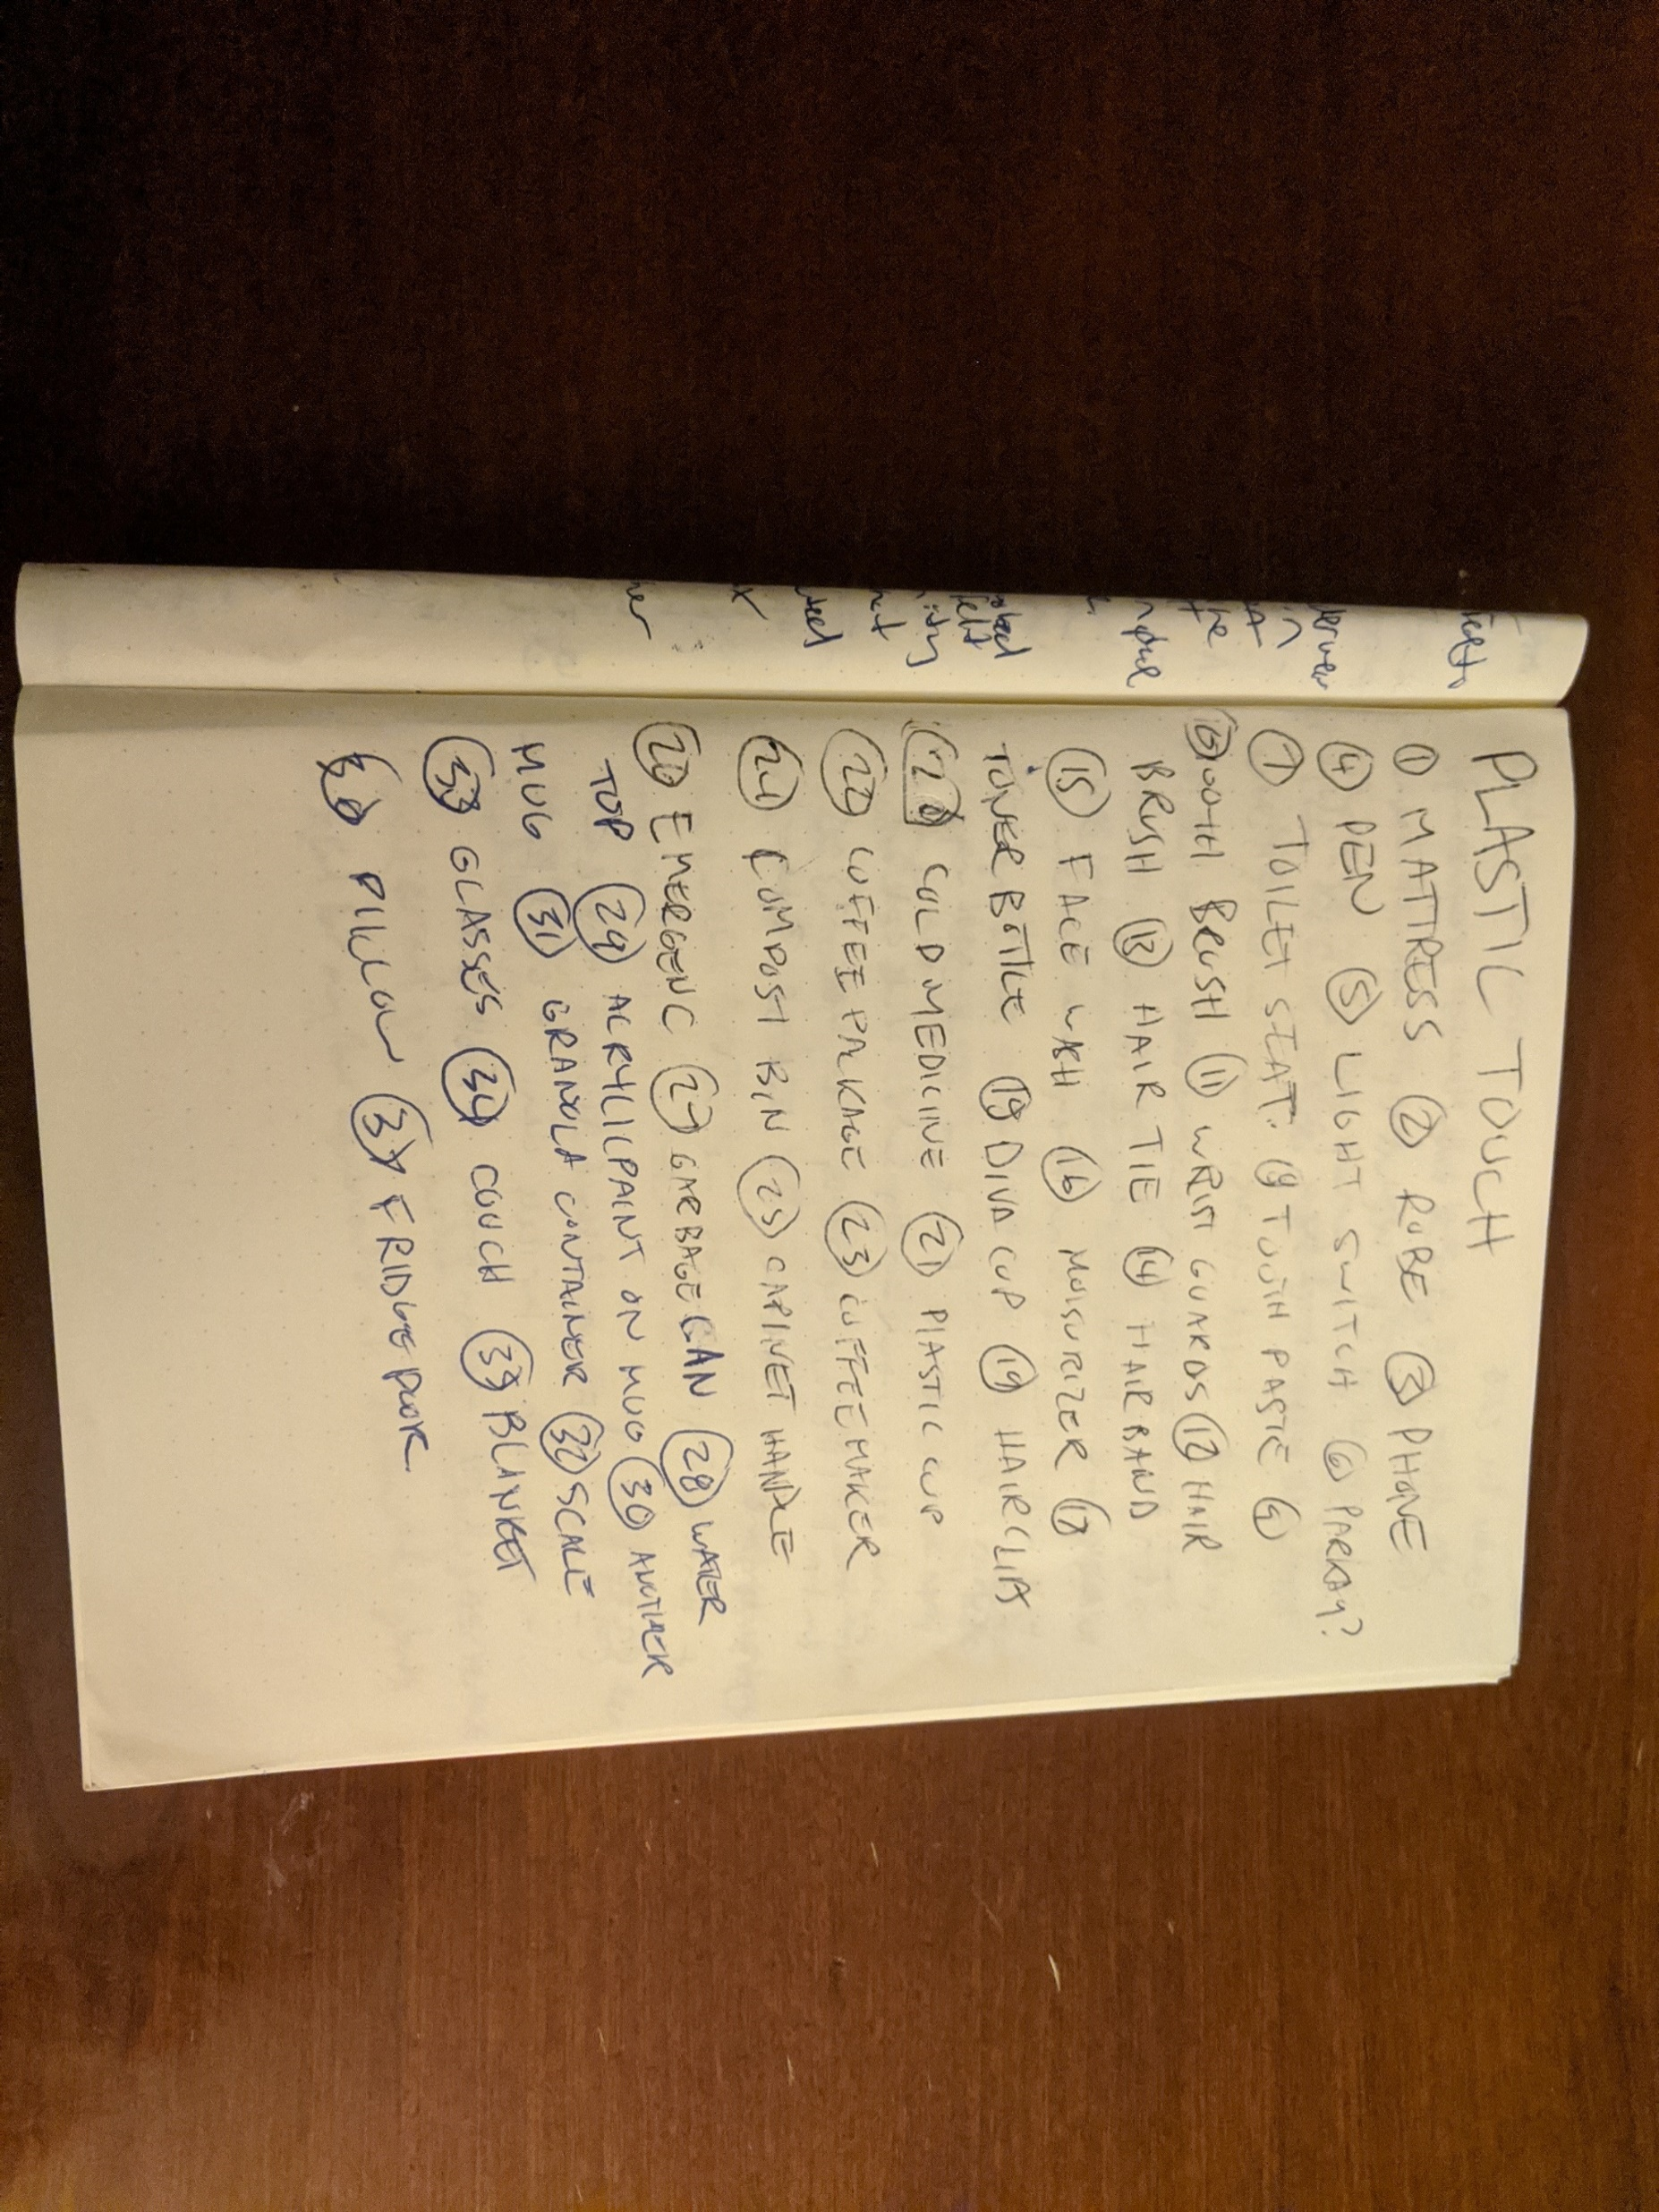 PLASTIC TOUCH
① MATTRESS ② ROBE ③ PHONE
④ PEN ⑤ LIGHT SWITCH ⑥ PARKAY?
⑦ TOILET SEAT. TOOTH PASTE
OOTH BRUSH ⑪ WRIST GUARDS ⑫ HAIR
BRUSH ⑬ HAIR TIE ⑭ HAIR BAND
⑮ FACE WASH ⑯ MOISURIZER ⑰
TONER BOTTLE DIVA CUP ⑲ HAIR CLIPS
⑳ COLD MEDICINE ㉑ PLASTIC CUP
㉒ COFFEE PACKAGE ㉓ COFFEE MAKER
㉔ COMPOST BIN ㉕ CABINET HANDLE
EMERGENC ㉗ GARBAGE CAN ㉘ WATER
TOP ㉙ ACRYLIC PAINT ON MUG ㉚ ANOTHER
MUG ㉛ GRANOLA CONTAINER ㉜ SCALE
GLASSES ㉞ COUCH BLANKET
PILLOW FRIDGE DOOR.